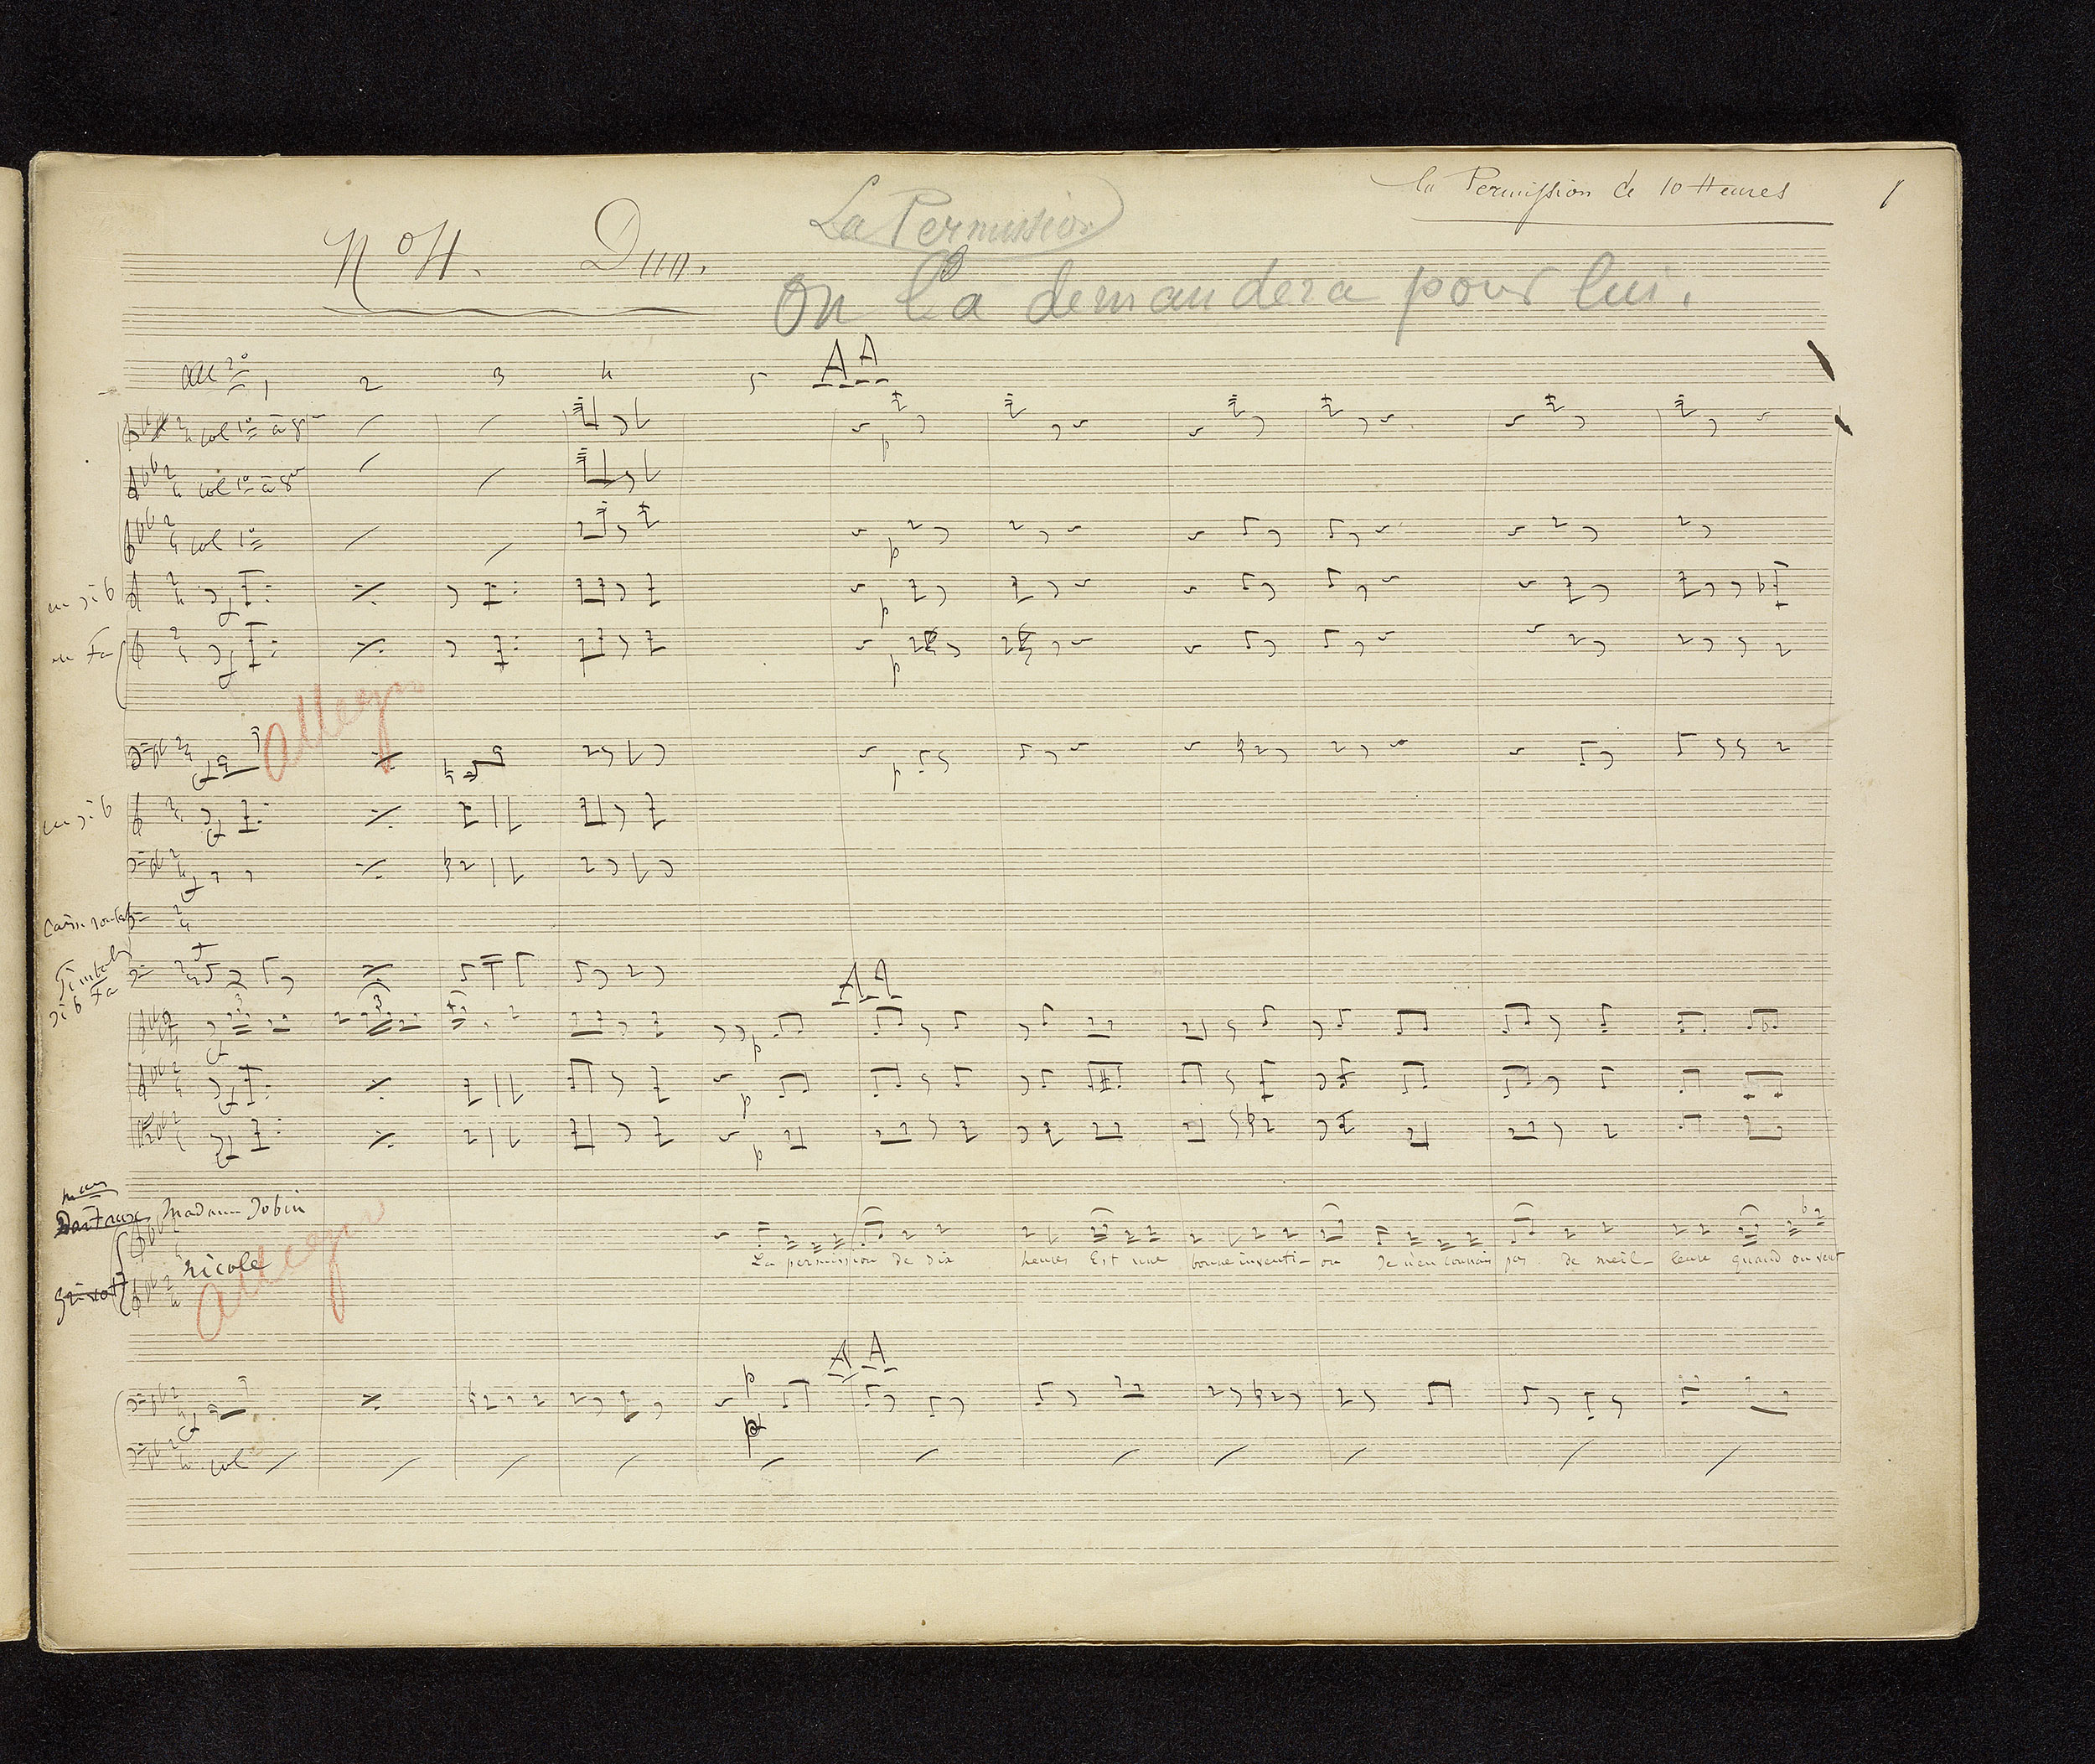 la Permission de 10 Heures 1
La Permission
No 4. Duo.
On la demandera pour lui.
All º 1 2 3 4 5 AA
col 1º à 8
col 1º à 8
col 1º
en si b
en Fa
Allegro
en si b
Timbales
si b Fa
AA
Madame Jobin
La permission de dix heures Est une bonne inventi-on Je n'en connais pas de meil-leure quand on veut
Nicole
Allegro
AA
col